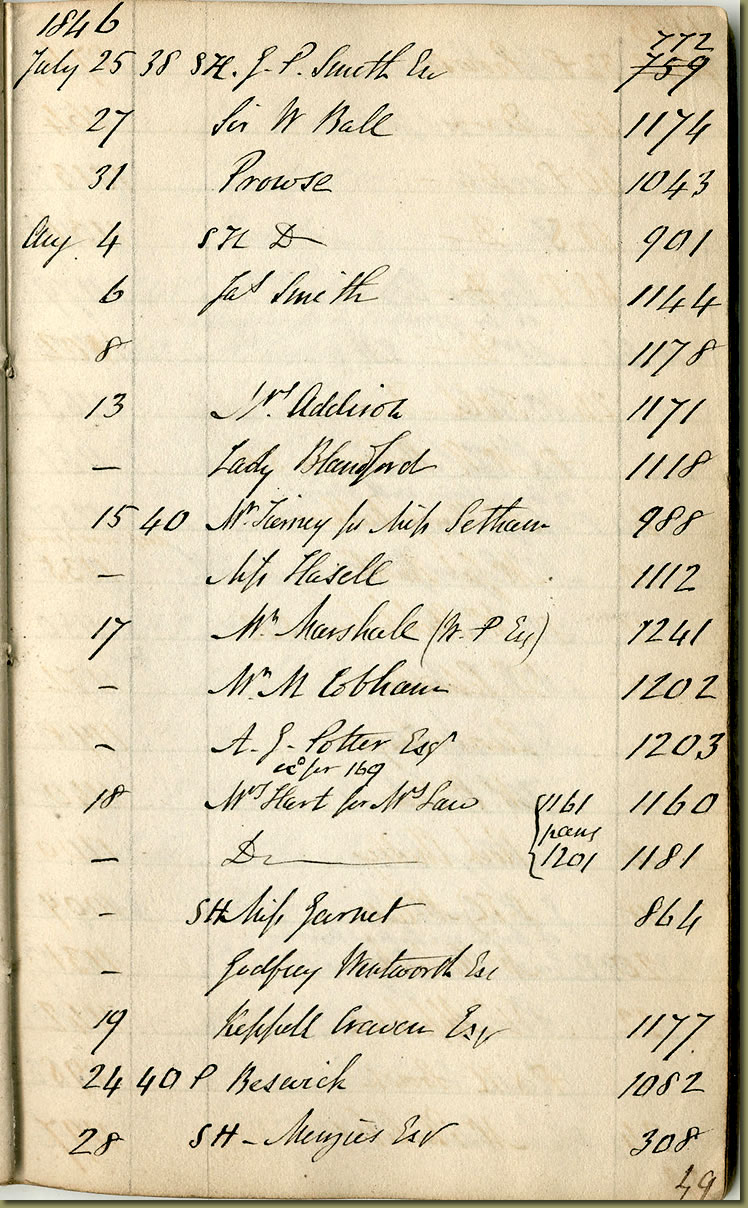 1846
772
July 25 38 SH. J. P. Smith Esq 759
27 Sir W Ball 1174
31 Prowse 1043
Aug 4 SH Do 901
6 Jas Smith 1144
8 1178
13 Mrs Addison 1171
— Lady Blandford 1118
15 40 Mr Tierney for Miss 988
— Miss Hasell 1112
17 Mr Marshall (W. P Esq) 1241
— Mr M Cobham 1202
— A. J. Potter Esqr 1203
for 169
18 Mrs Hart for Mrs Law 1161 1160
pans
— Do 1201 1181
— SH Miss Garnet 864
— Godfrey Wentworth Esq
19 Keppell Craven Esqr 1177
24 40 P Beswick 1082
28 SH – Menzies Esqr 308
49